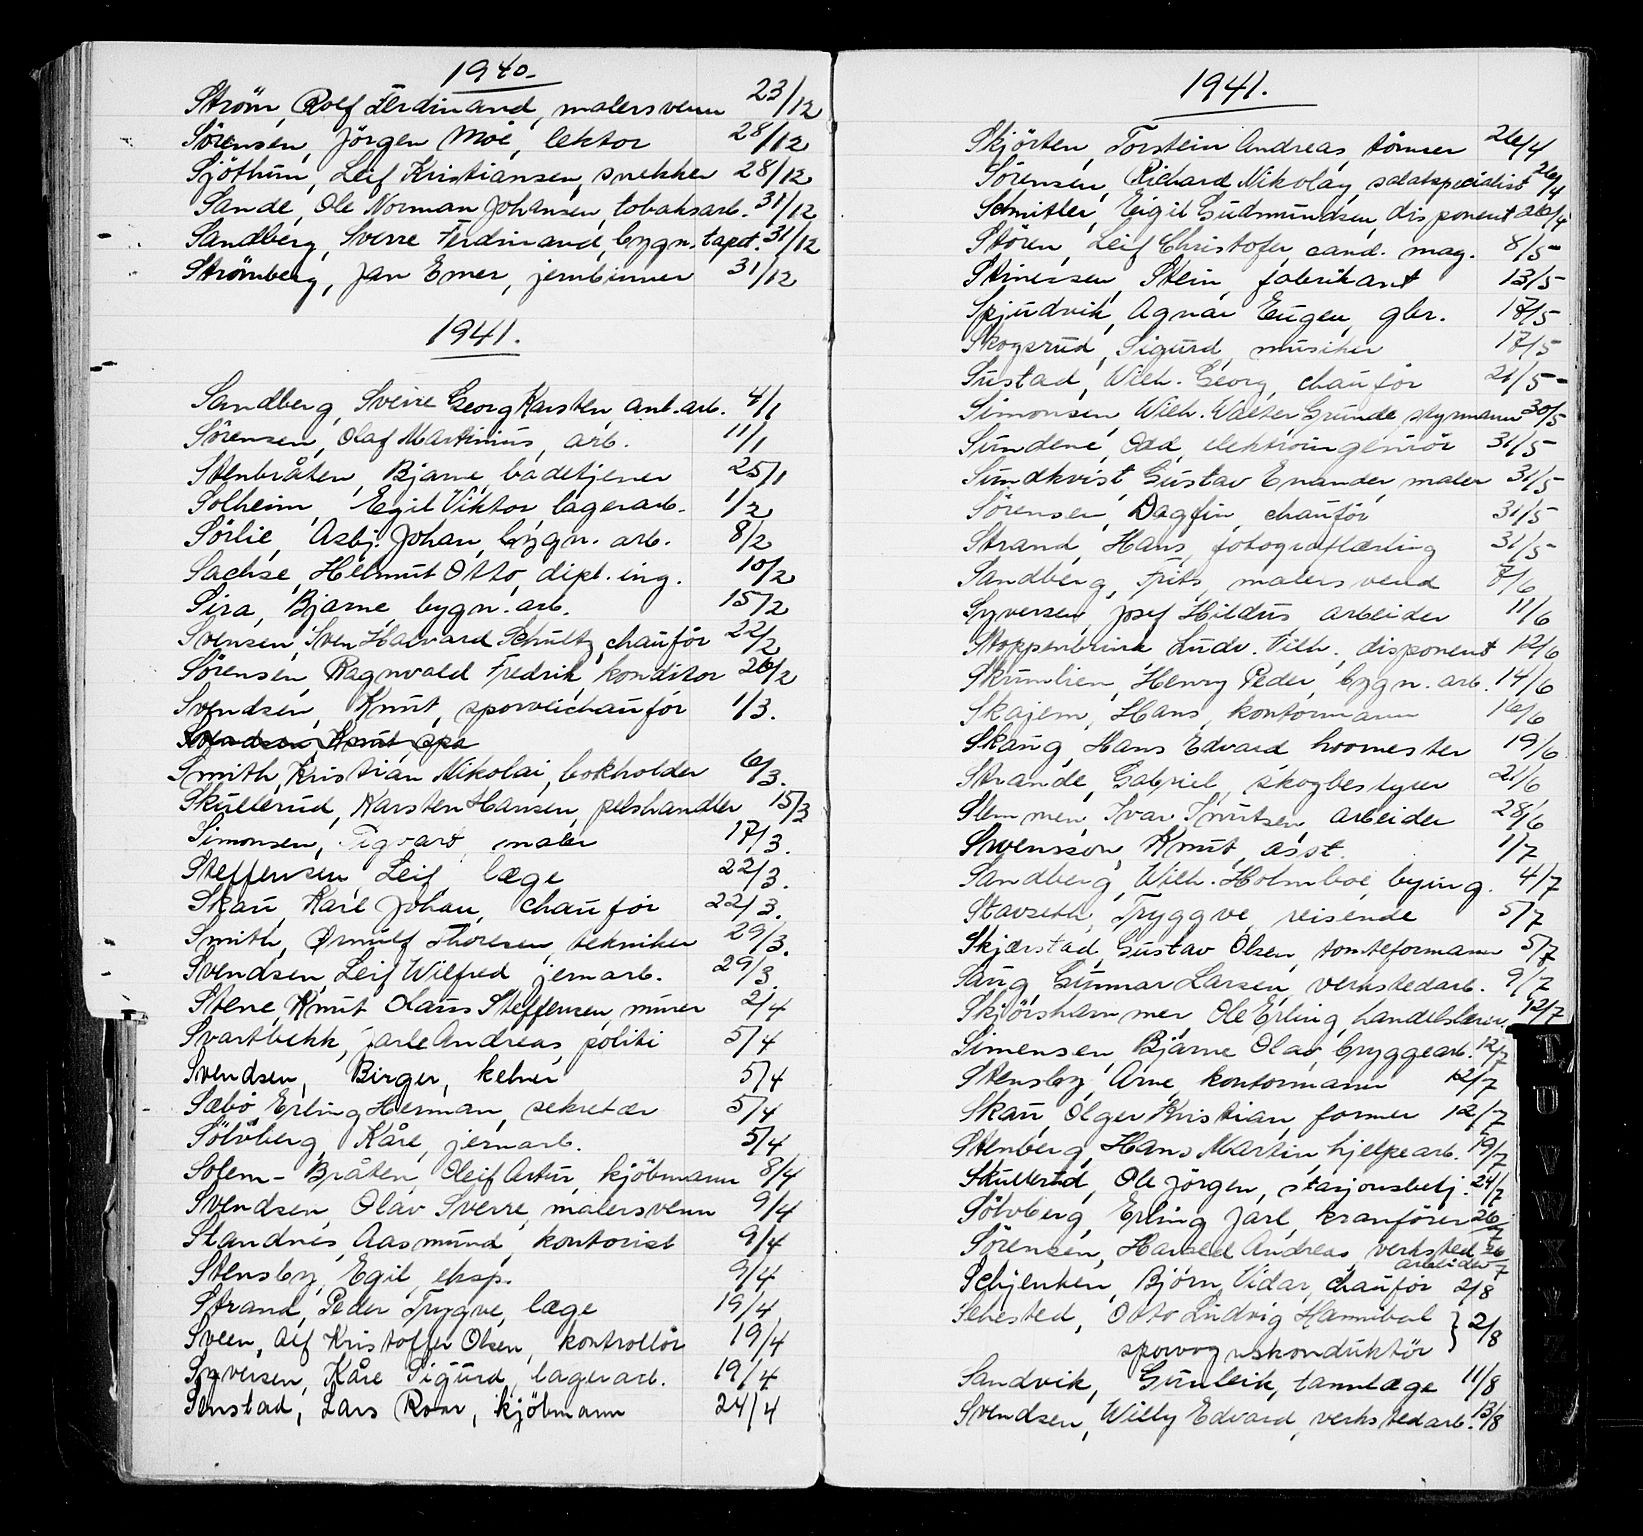 1940.
Strøm, Rolf Ferdinand, malersvenn 23/12
Sørensen, Jörgen Moe, lektor 28/12
Sjöthun, Leif Kristiansen, snekker 28/12
Sande, Ole Norman Johansen, tobaksarb. 31/12
Sandberg, Sverre Ferdinand, bygn.tapet. 31/12
Strømberg, Jan Emer, jernbinner 31/12
1941.
Sandberg, Sverre Georg Karsten, anl.arb. 4/1
Sørensen, Olaf Martinius, arb. 11/1
Stenbråten, Bjarne, badetjener 25/1
Solheim, Egil Viktor lagerarb. 1/2
Sörlie, Asbj. Johan, bygn. arb. 8/2
Sachse, Helmut Otto, dipl. ing. 10/2
Sira, Bjarne, bygn. arb. 15/2
Svensen, Sven Halvard Schultz, chauför 22/2
Sørensen, Ragnvald Fredrik, konditor 26/2
Svendsen, Knut, sporveichauför 1/3.
Svendsen, Knut, spo
Smith, Kristian Nikolai, bokholder 6/3.
Skullerud, Karsten Hansen, pelshandler 15/3
Simonsen, Sigvard, maler 17/3.
Steffensen, Leif, læge 22/3.
Skau, Karl Johan, chauför 22/3.
Smith, Ørnulf Thoresen, tekniker 29/3.
Svendsen, Leif Wilfred, jernarb. 29/3.
Stene, Knut Olaus Steffensen, murer 2/4
Svartbekk, Jarle Andreas, politi 5/4
Svendsen, Birger, kelner 5/4
Sæbø, Erling Herman, sekretær 5/4
Sölvberg, Kåre, jernarb. 5/4
Solem-Bråten, Oleif Artur, kjöbmann 8/4
Svendsen, Olav Sverre, malersvenn 9/4
Standnes, Aasmund, kontorist 9/4
Stensby, Egil, eksp. 9/4
Strand, Peder Trygve, læge 19/4
Sveen, Alf Kristoffer Olsen, kontrollör 19/4
Syversen, Kåre Sigurd, lagerarb. 19/4
Senstad, Lars Roar, kjöbmann 24/4
1941.
Skjörten, Torstein Andreas, tömrer 26/4
Sørensen, Richard Nikolay, salatspecialist 26/4
Schmitler, Eigil Gudmundsen, disponent 26/4
Stören, Leif Christofer, cand. mag. 8/5
Stinersen, Stein, fabrikant 13/5
Spjudvik, Agnar Eugen, gbr. 17/5
Skogsrud, Sigurd, musiker 17/5
Sustad, Wilh. Georg, chauför 21/5
Simonsen, Wilh. Walter Grunde, styrmann 30/5
Sundene, Odd, elektroingeniör 31/5
Sundkvist, Gustav Enander, maler 31/5
Sørensen, Dagfin, chauför 31/5
Strand, Hans, fotograflærling 31/5
Sandberg, Frits, malersvend 7/6
Syversen, Josef Hildus arbeider 11/6
Stoppenbrink Ludv. Vilh., disponent 12/6
Skumlien, Henry Peder, bygn. arb. 14/6
Skajem, Hans, kontormann 16/6
Skaug, Hans Edvard hovmester 19/6
Strande, Gabriel, skogbestyrer 21/6
Slemmen, Ivar Knutsen, arbeider 28/6
Swensson, Knut, asst. 1/7
Sandberg, Wilh. Holmboe, bying. 4/7
Stavseth, Tryggve, reisende 5/7
Skjærstad, Gustav Olsen, tomteformann 5/7
Saug, Gunnar Larsen, verkstedarb. 9/7
Skjörshammer, Ole Erling, handelslærer 12/7
Simensen, Bjarne Olav, bryggearb. 12/7
Stensby, Arne, kontormann 12/7
Skau, Olger Kristian, former 12/7
Stenberg, Hans Martin, hjelpearb. 19/7
Skullerud, Ole Jörgen, stasjonsbetj. 24/7
Sölvberg, Erling Jarl, kranförer 26/7
Sørensen, Harald Andreas, verksted 26/7
arbeider
Schjenken, Björn Vidar, chauför 2/8
Sehested, Otto Ludvig Hannibal } 2/8
sporvognskonduktör
Sandvik, Gunleik, tannlæge 11/8
Svendsen, Willy Edvard, verkstedarb. 13/8
T.
U
V
W
X
Y